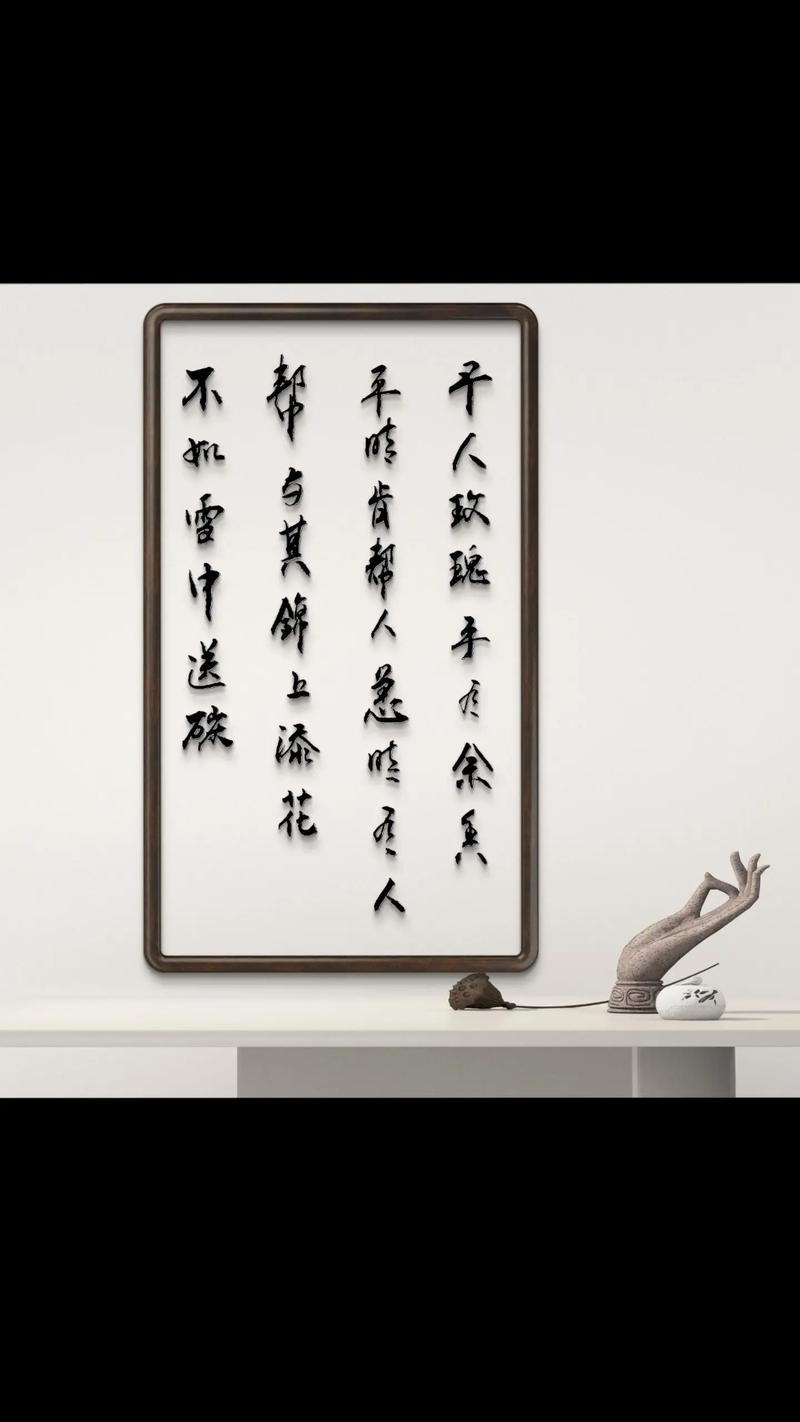 予人玫瑰手有余香
平時肯帮人急時有人
帮与其錦上添花
不如雪中送碳